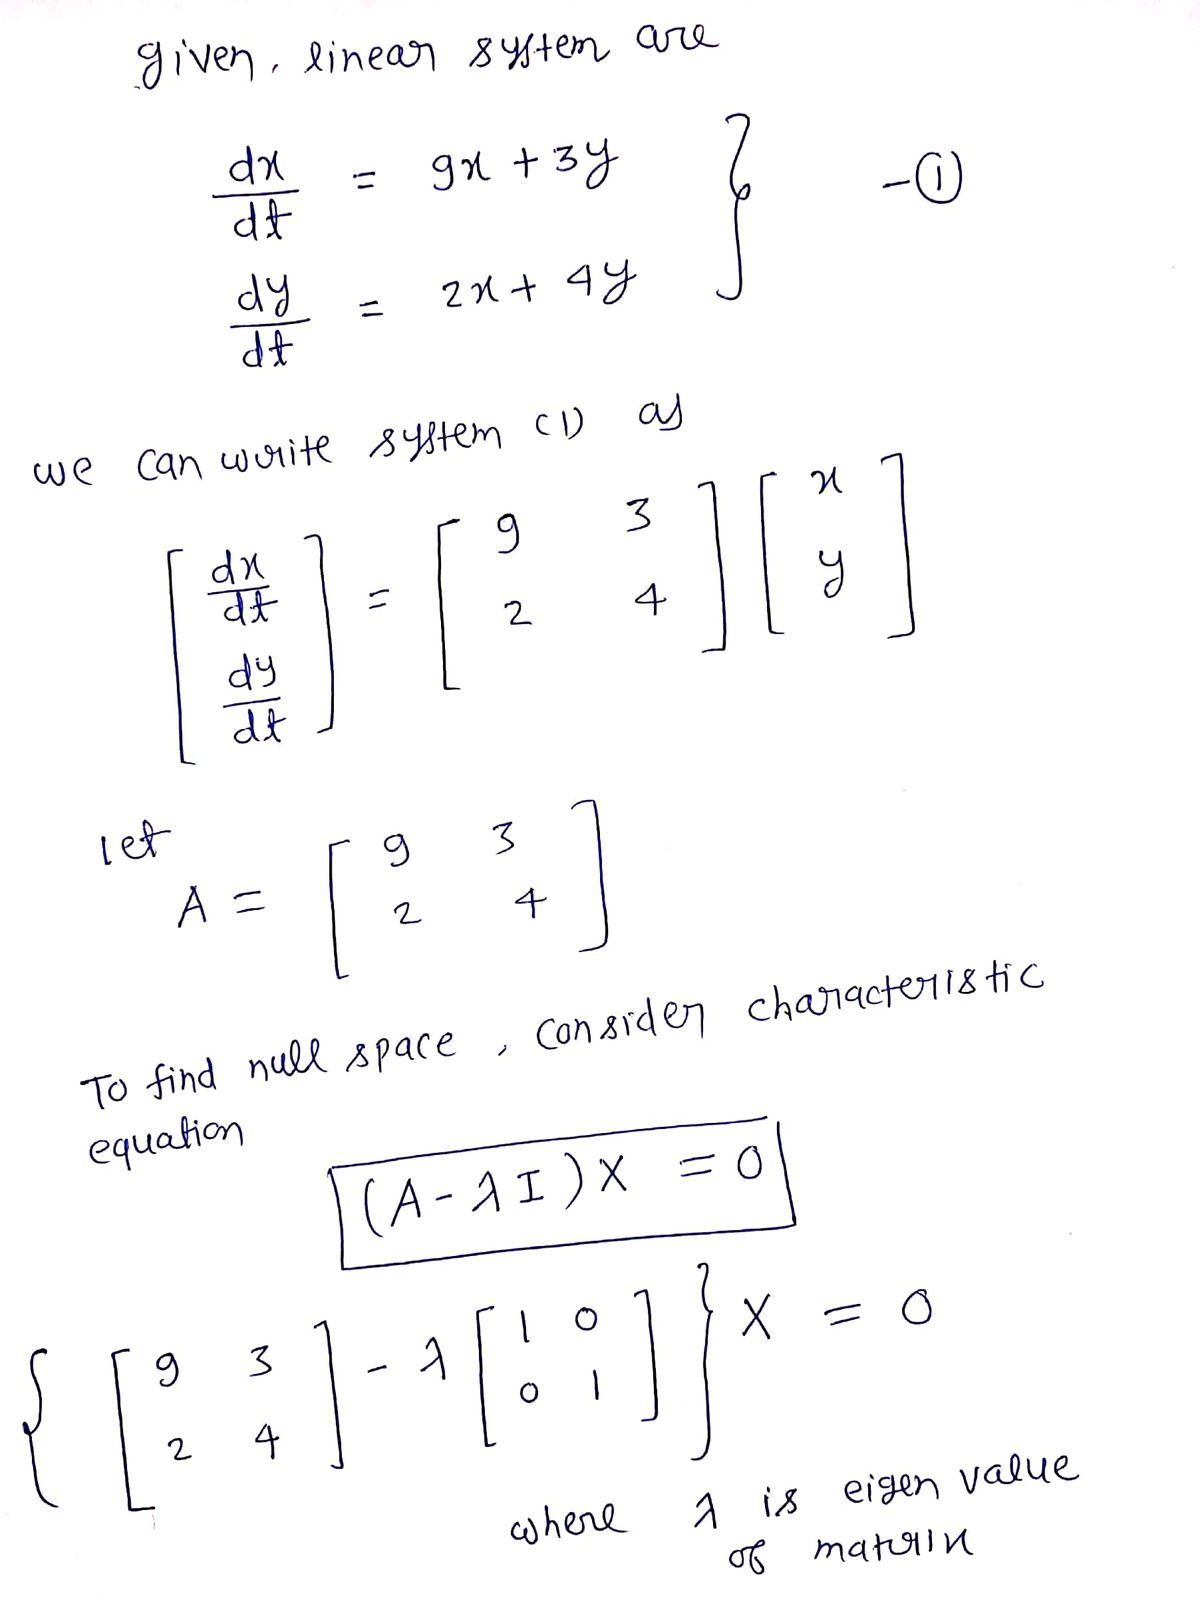 given, linear system are
dx/dt = 9x + 3y
dy/dt = 2x + 4y } -①
we can write system (1) as
[dx/dt dy/dt] = [9 3 2 4] [x y]
let
A = [9 3 2 4]
To find null space, consider characteristic
equation
(A - λI)X = 0
{[9 3 2 4] - λ[1 0 0 1]}X = 0
where λ is eigen value
of matrix